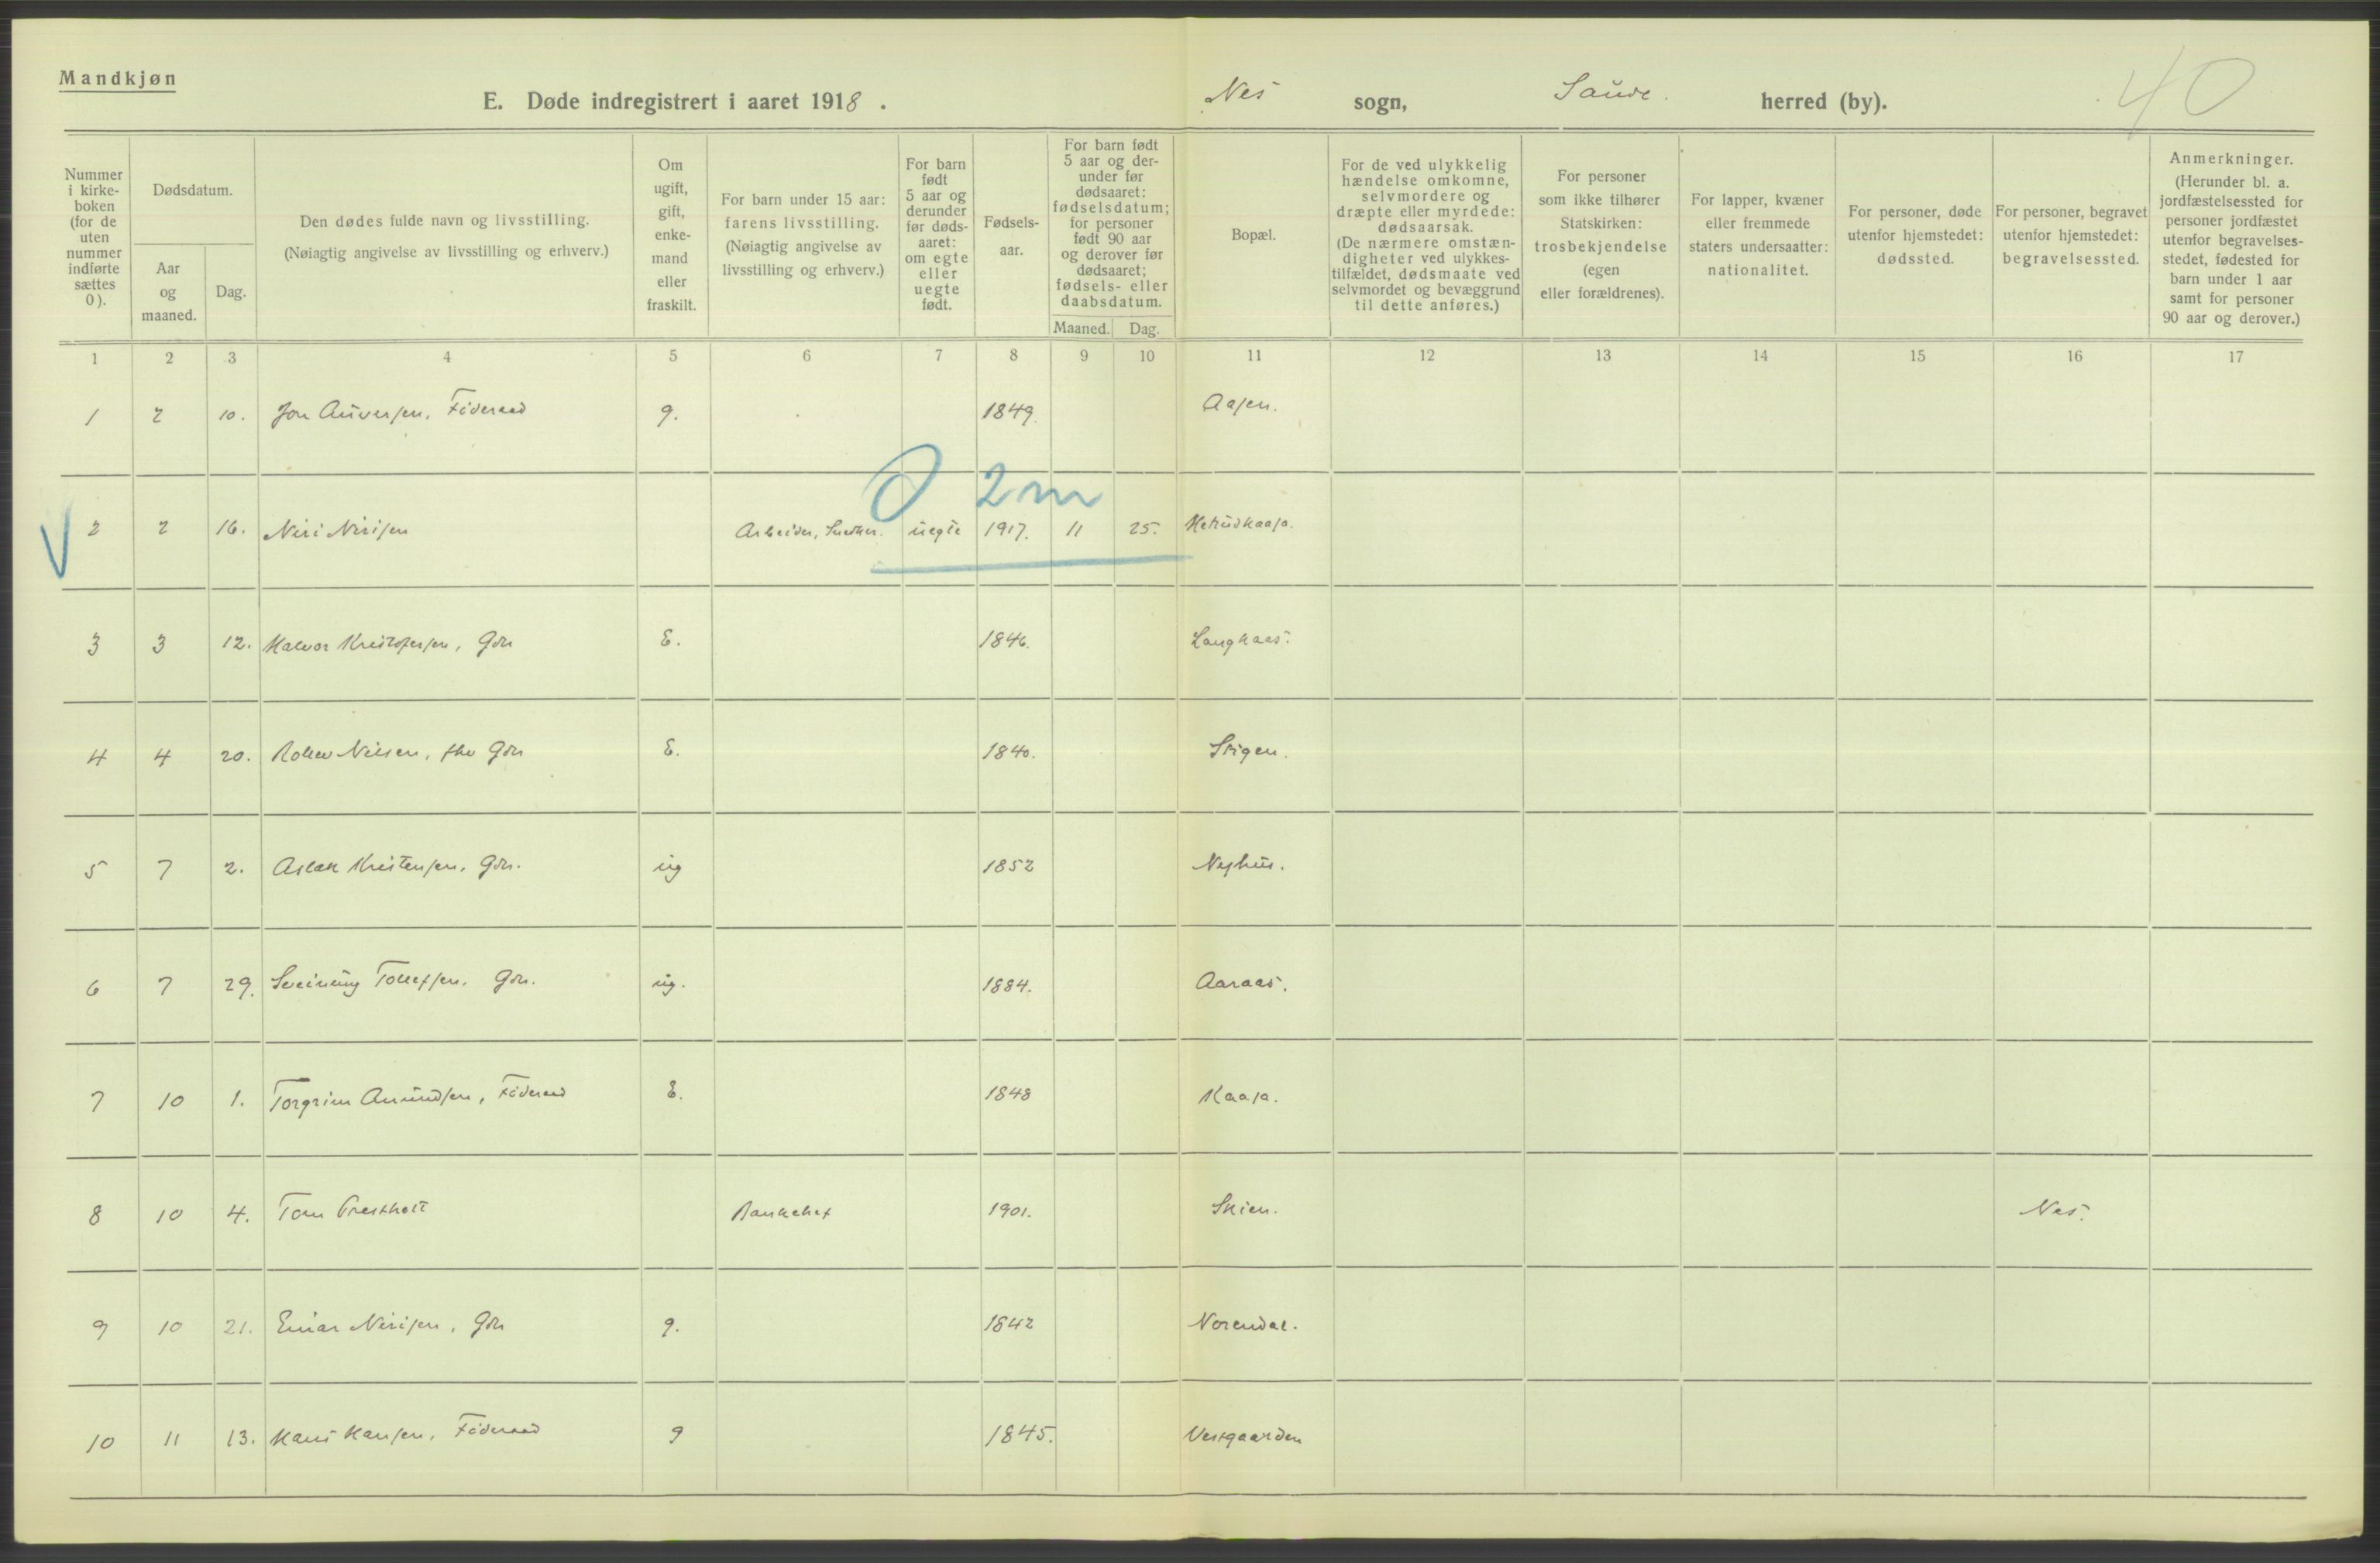 Mandkjøn
E. Døde indregistrert i aaret 1918.
Nes sogn, Saude. herred (by).
40
Nummer i kirke-boken (for de uten nummer indførte sættes 0).
Dødsdatum.
Aar og maaned.
Dag.
Den dødes fulde navn og livsstilling.
(Nøiagtig angivelse av livsstilling og erhverv.)
Om ugift, gift, enke-mand eller fraskilt.
For barn under 15 aar: farens livsstilling. (Nøiagtig angivelse av livsstilling og erhverv.)
For barn født 5 aar og derunder før døds-aaret: om egte eller uegte født.
Fødsels-aar.
For barn født 5 aar og der-under før dødsaaret: fødselsdatum; for personer født 90 aar og derover før dødsaaret; fødsels- eller daabsdatum.
Maaned. Dag.
Bopæl.
For de ved ulykkelig hændelse omkomne, selvmordere og dræpte eller myrdede: dødsaarsak. (De nærmere omstæn-digheter ved ulykkes-tilfældet, dødsmaate ved selvmordet og bevæggrund til dette anføres.)
For personer som ikke tilhører Statskirken: trosbekjendelse (egen eller forældrenes).
For lapper, kvæner eller fremmede staters undersaatter: nationalitet.
For personer, døde utenfor hjemstedet: dødssted.
For personer, begravet utenfor hjemstedet: begravelsessted.
Anmerkninger. (Herunder bl. a. jordfæstelsessted for personer jordfæstet utenfor begravelses-stedet, fødested for barn under 1 aar samt for personer 90 aar og derover.)
1 2 3 4 5 6 7 8 9 10 11 12 13 14 15 16 17
1 2 10. Jon Auversen, Føderaad g. 1849. Aasen.
0 2m
2 2 16. Niri Nirisen Arbeider, uegte 1917. 11 25.
3 3 12. Halvor Kristofersen, Gdr E. 1846. Langkaas.
4 4 20. Rollev Nilsen, fhv Gdr E. 1840. Stigen.
5 7 2. Aslak Kristensen, Gdr. ug 1852 Neshus.
6 7 29. Sveinung Tollefsen, Gdr. ug. 1884. Aaraas.
7 10 1. Torgrim Amundsen, Føderaad E. 1848 Kaasa.
8 10 4. Tom Prestholt Bankchef 1901. Skien. Nes.
9 10 21. Einar Nirisen, Gdr g. 1842 Norendal.
10 11 13. Hans Hansen, Føderaad g 1845. Vestgaarden